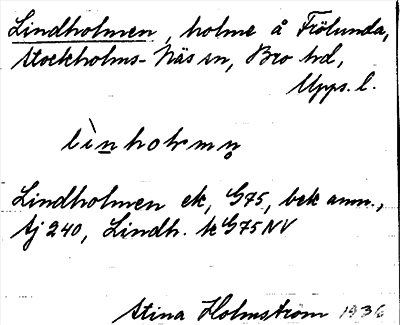 Lindholmen, holme å Frölunda,
Stockholms-Näs sn, Bro hd,
Upps. l.
lìnholmn̥
Lindholmen ek, G75, bek anm.,
Aj 240, Lindh. tG75NV
Stina Holmström 1936